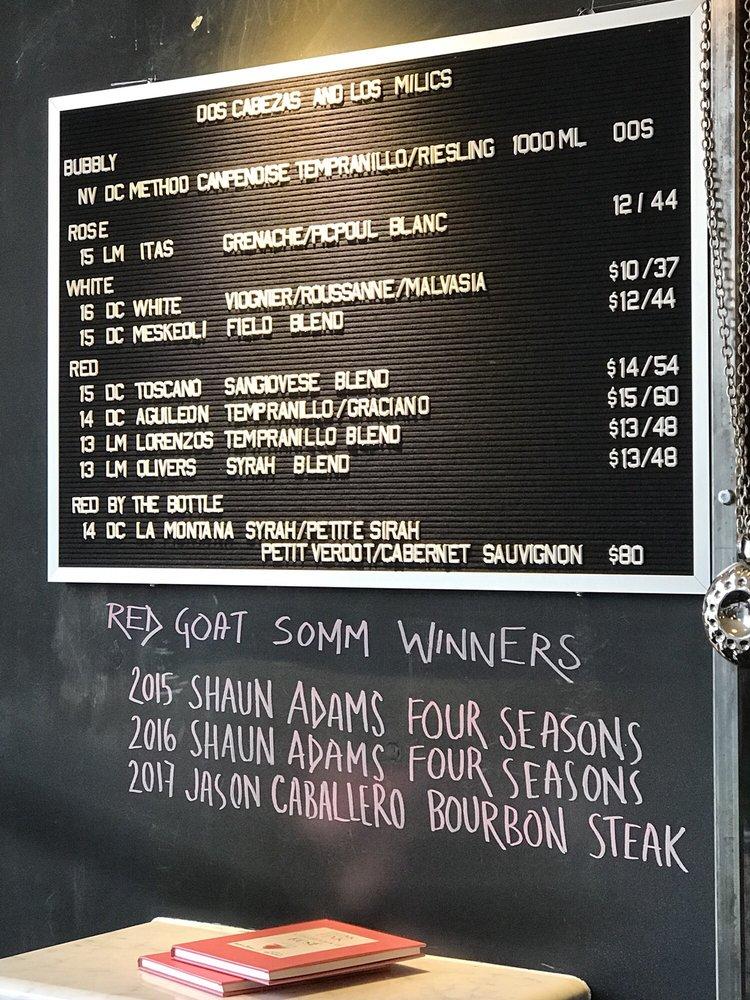 DOS CABEZAS AND LOS MILICS
BUBBLY
NV DC METHOD CANPENOISE TEMPRANILLO/RIESLING 1000ML OOS
ROSE 12/44
15 LM ITAS GRENACHE/PICPOUL BLANC
WHITE $10/37
16 DC WHITE VIOGNIER/ROUSSANNE/MALVASIA $12/44
15 DC MESKEOLI FIELD BLEND
RED $14/54
15 DC TOSCANO SANGIOVESE BLEND $15/60
14 DC AGUILEON TEMPRANILLO/GRACIANO $13/48
13 LM LORENZOS TEMPRANILLO BLEND $13/48
13 LM OLIVERS SYRAH BLEND
RED BY THE BOTTLE
14 DC LA MONTANA SYRAH/PETITE SIRAH
PETIT VERDOT/CABERNET SAUVIGNON $80
RED GOAT SOMM WINNERS
2015 SHAUN ADAMS FOUR SEASONS
2016 SHAUN ADAMS FOUR SEASONS
2017 JASON CABALLERO BOURBON STEAK